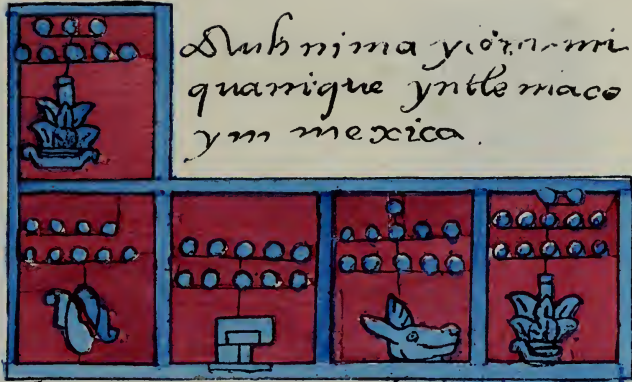 Auh nima
quanique yntlemaco
ym mexica.